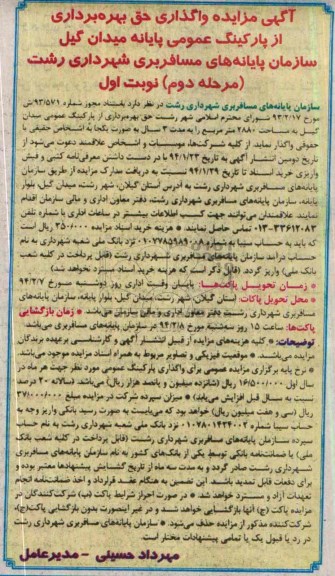 آگهی مزایده واگذاری حق بهره‌برداری
از پارکینگ عمومی پایانه میدان گیل
سازمان پایانه‌های مسافربری شهرداری رشت
(مرحله دوم) نوبت اول
سازمان پایانه‌های مسافربری شهرداری رشت در نظر دارد باستناد مجوز شماره ۹۳/۵۷۱/ش
مورخ ۹۳/۲/۱۷ شورای محترم اسلامی شهر رشت حق بهره‌برداری از پارکینگ عمومی میدان
گیل به مساحت ۲۸۸۰ متر مربع را به مدت ۳ سال به صورت یکجا به اشخاص حقیقی یا
حقوقی واگذار نماید. از کلیه شرکت‌ها، موسسات و اشخاص علاقمند دعوت می‌شود از
تاریخ دومین انتشار آگهی به تاریخ ۹۴/۱/۲۳ با در دست داشتن معرفی‌نامه کتبی و فیش
واریزی خرید اسناد تا تاریخ ۹۴/۱/۲۹ نسبت به دریافت مدارک مزایده از طریق سازمان
پایانه‌های مسافربری شهرداری رشت به آدرس استان گیلان، شهر رشت، میدان گیل، بلوار
پایانه، سازمان پایانه‌های مسافربری شهرداری رشت، دفتر معاون اداری و مالی سازمان اقدام
نمایند. علاقمندان می‌توانند جهت کسب اطلاعات بیشتر در ساعات اداری با شماره تلفن
۰۱۳-۳۳۶۱۲۰۸۳ تماس حاصل نمایند. * هزینه خرید اسناد مزایده ۳۵۰/۰۰۰ ریال است
که باید به حساب سیبا به شماره نزد بانک ملی شعبه شهرداری به نام
حساب درآمد سازمان پایانه‌های مسافربری شهرداری رشت (قابل پرداخت در کلیه شعب
بانک ملی) واریز گردد. (قابل ذکر است که هزینه خرید اسناد مسترد نخواهد شد)
* زمان تحویل پاکت‌ها: پایان وقت اداری روز دوشنبه مورخ ۹۴/۲/۷
* محل تحویل پاکات: استان گیلان، شهر رشت، میدان گیل، بلوار پایانه، سازمان پایانه‌های
مسافربری شهرداری رشت دفتر معاون اداری و مالی سازمان می‌باشد. * زمان بازگشایی
پاکت‌ها: ساعت ۱۵ روز سه‌شنبه مورخ ۹۴/۲/۸ در سازمان پایانه‌های مسافربری می‌باشد.
توضیحات: * کلیه هزینه‌های مزایده از قبیل انتشار آگهی و کارشناسی برعهده برندگان
مزایده می‌باشد. * موقعیت فیزیکی و تصاویر مربوط به همراه اسناد مزایده موجود می‌باشد.
* نرخ پایه برگزاری مزایده عمومی برای واگذاری پارکینگ عمومی مورد نظر جهت هر ماه در
سال اول ۱۶/۵۰۰/۰۰۰ ریال (شانزده میلیون و پانصد هزار ریال) می‌باشد. (سالانه ۲۰ درصد
نسبت به سال قبل افزایش می‌یابد) * میزان سپرده شرکت در مزایده مبلغ ۳۷/۰۰۰/۰۰۰
ریال (سی و هفت میلیون ریال) خواهد بود که می‌بایست به صورت رسید بانکی واریز وجه به
حساب سیبا شماره نزد بانک ملی شعبه شهرداری رشت به نام حساب
سپرده سازمان پایانه‌های مسافربری شهرداری رشت (قابل پرداخت در کلیه شعب بانک
ملی) یا ضمانت‌نامه بانکی توسط یکی از بانک‌های کشور به نام سازمان پایانه‌های مسافربری
شهرداری رشت صادر گردد و به مدت سه ماه از تاریخ گشایش پیشنهادها معتبر بوده و
برای دفعات قابل تمدید باشند. این تضمین به هنگام عقد قرارداد و اخذ ضمانت‌نامه انجام
تعهدات آزاد و مسترد خواهد شد. * در صورت احراز شرایط پاکت (ب) شرکت‌کنندگان در
مزایده پاکت (ج) آنها بازگشایی خواهد شد و در غیر اینصورت بدون بازگشایی پاکت(ج)،
شرکت‌کننده مذکور از مزایده حذف می‌شود. * سازمان پایانه‌های مسافربری شهرداری رشت
در رد یا قبول یک یا تمامی پیشنهادات مختار است.
مهرداد حسینی - مدیرعامل